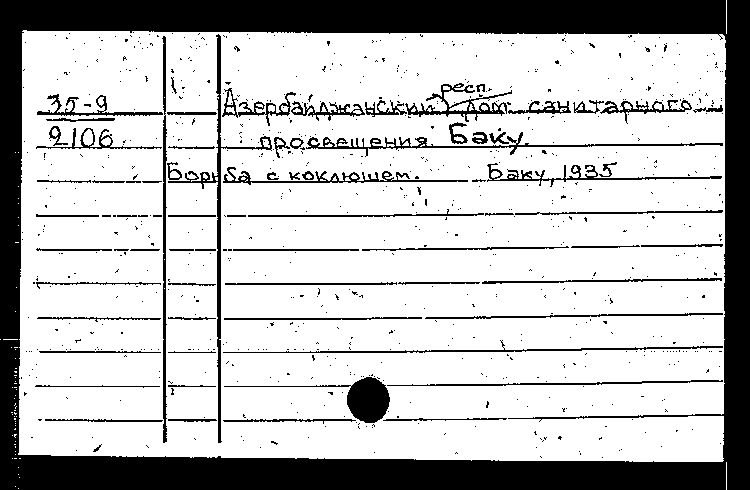 респ.
35-9 Азербайджанский дом санитарного
2106 просвещения. Баку.
Борьба с коклюшем. Баку, 1935